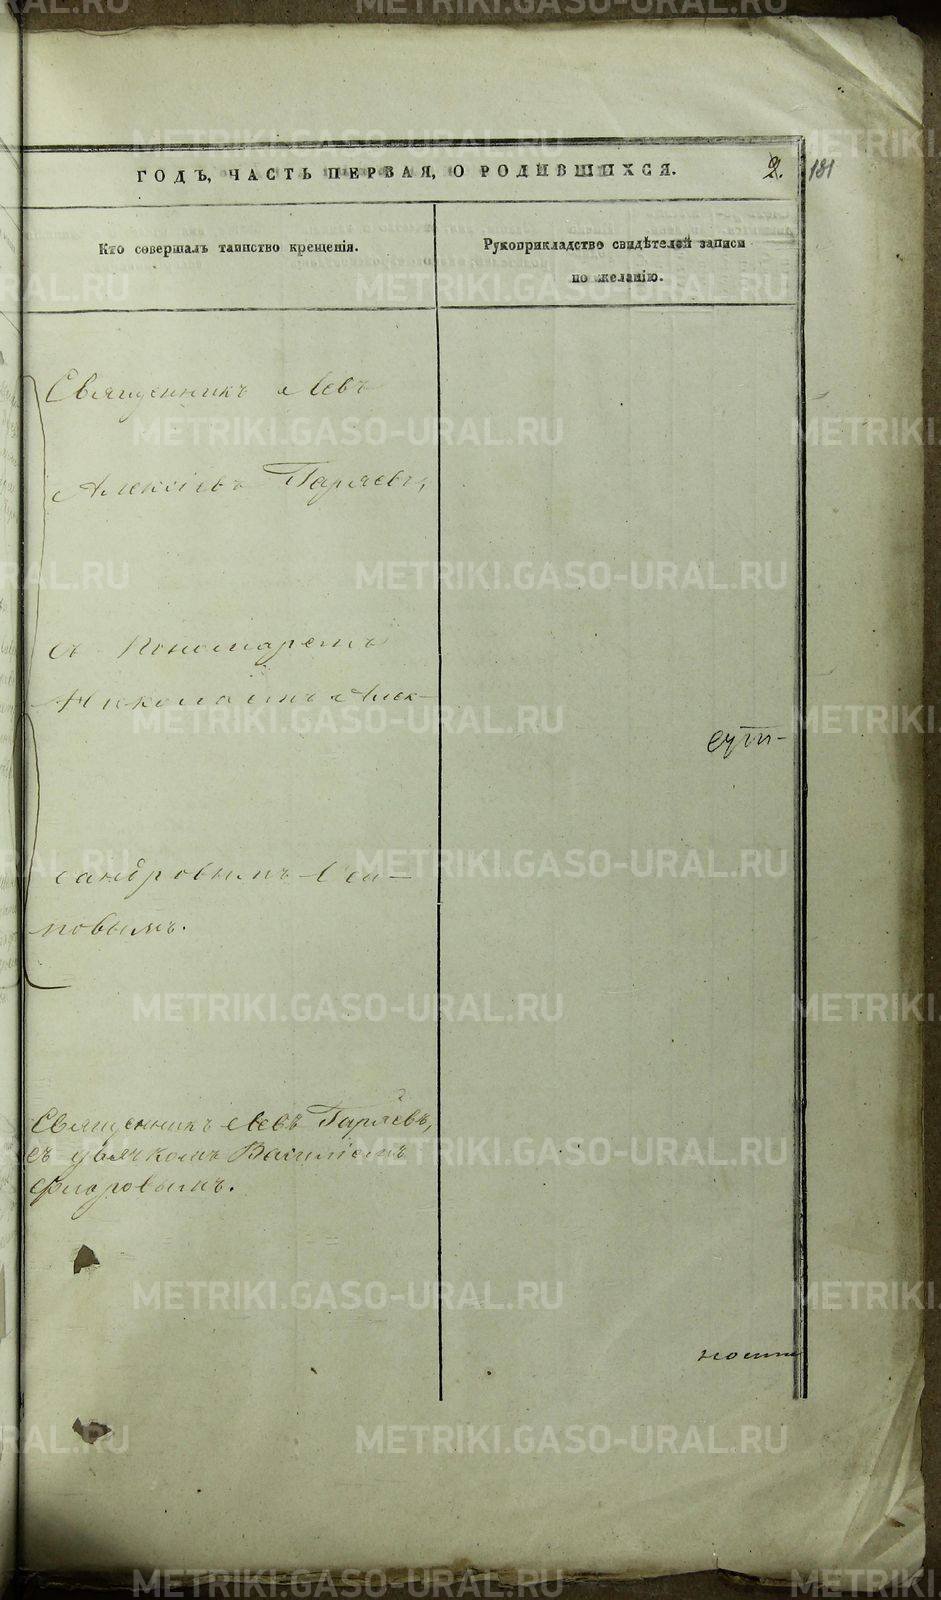 METRIKI.GASO-URAL.RU
ГОДЪ, ЧАСТЬ ПЕРВАЯ, О РОДИВШИХСЯ.
2.
181
Кто совершалъ таинство крещенія.
Рукоприкладство свидѣтелей записи
по желанію.
Священникъ Левъ
Алексіевъ Гаряевъ,
съ Пономаремъ
Николаемъ Алек-
сандровымъ Оси-
повымъ.
Священникъ Левъ Гаряевъ,
съ дьячкомъ Василіемъ
Флоровымъ.